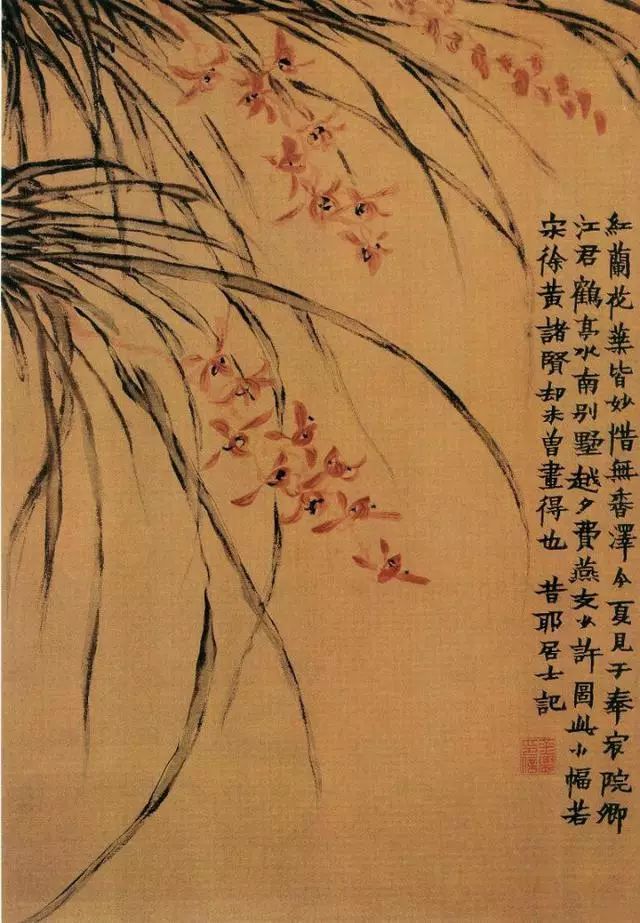 紅蘭花葉皆妙惜無香澤今夏見于奉宸院卿
江君鶴亭水南別墅越夕費燕支少許圖此小幅若
宋徐黃諸賢却未曽畫得也 昔耶居士記